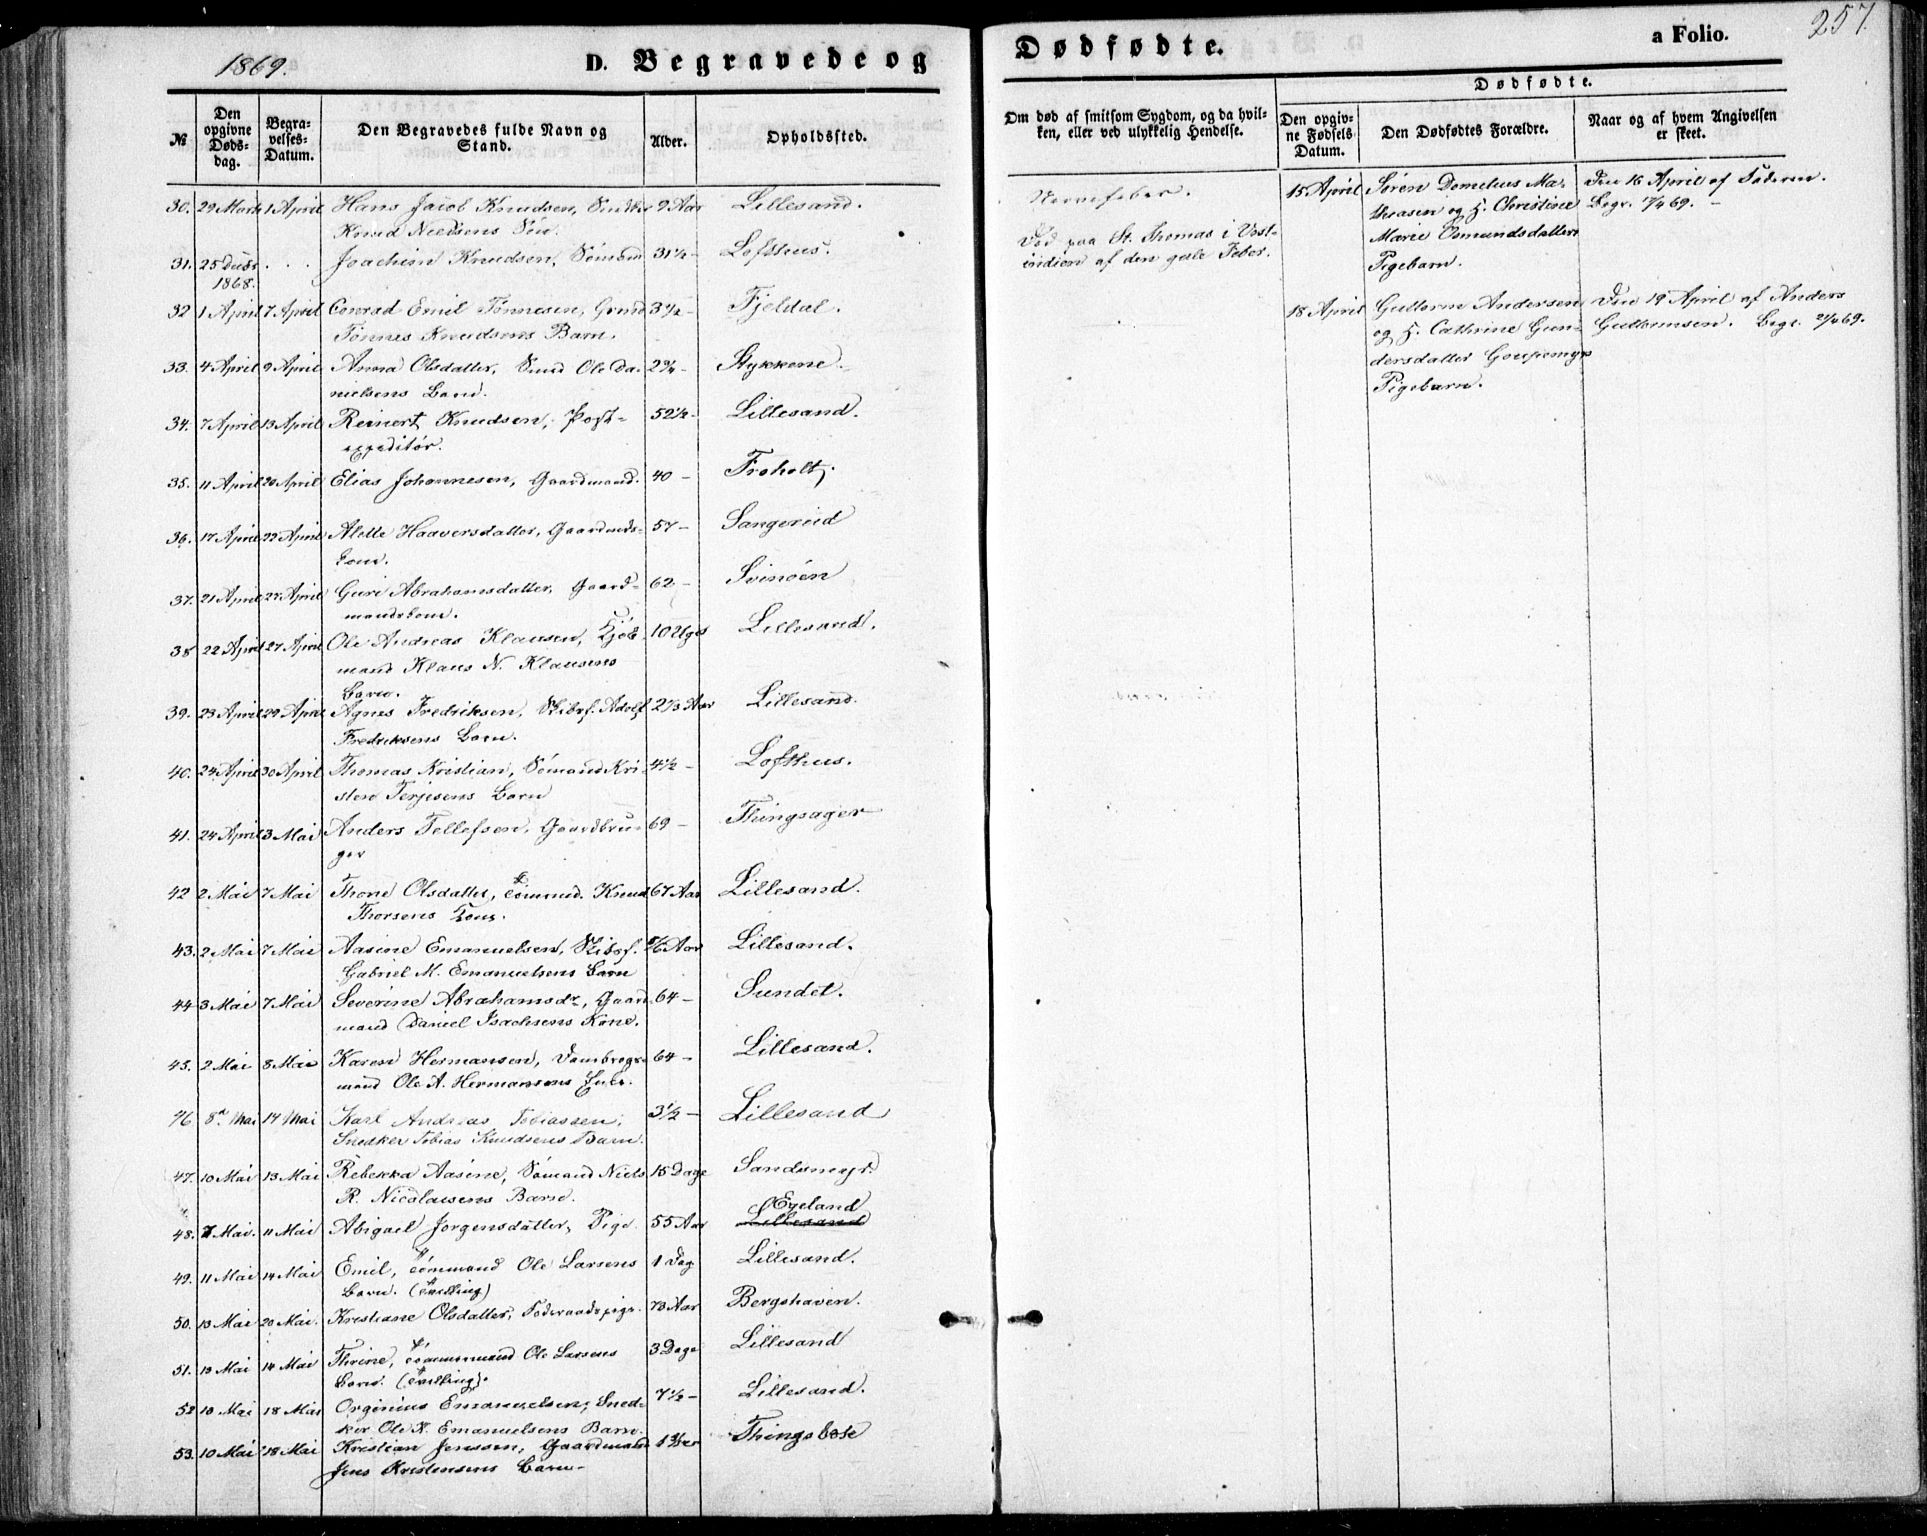 1869.
D. Begravede og
Dødfødte.
a Folio.
257.
Dødfødte.
№
Den opgivne Døds-dag.
Begra-velses-Datum.
Den Begravedes fulde Navn og Stand.
Alder.
Opholdssted.
Om død af smitsom Sygdom, og da hvil-
ken, eller ved ulykkelig Hendelse.
Den opgiv-ne Fødsels Datum.
Den Dødfødtes Forældre.
Naar og af hvem Angivelsen er skeet.
30. 29 Marts 1 April Hans Jacob Knudsen, 9 Aar Lillesand. Nervefeber.
Knud Nielsens Søn.
31. 25 Decbr . . . Joachim Knudsen, Sømand 31½ – Lofthus. Død paa St. Thomas i Vest-
1868. indien af den gule Feber.
32 1 April 7 April Conrad Emil Tønnesen, Grmd 3½ – Fjeldal.
Tønnes Knudsens Barn.
33. 4 April 9 April Anna Olsdatter, Ole Da- 2¾ – Stykkene.
nielsens Barn.
34. 7 April 13 April Reinert Knudsen, Post- 52½ – Lillesand.
expeditør.
35. 11 April 20 April Elias Johannesen, Gaardmand. 40 – Froholt.
36. 17 April 22 April Alette Haaversdatter, Gaardmds- 57 – Sangereid
kone.
37. 21 April 27 April Guri Abrahamsdatter, Gaard- 62 – Svinøen
mandskone.
38 22 April 27 April Ole Andreas Klausen, Kjøb- 10 Uger Lillesand.
mand Klaus N. Klausens
Barn.
39. 23 April 29 April Agnes Fredriksen, Skibsf. Adolf 2⅓ Aar Lillesand.
Fredriksens Barn.
40. 24 April 30 April Thomas Kristian, Sømand Kri- 4½ – Lofthus.
sten Terjesens Barn
41. 24 April 3 Mai Anders Tellefsen, Gaardbru- 69 – Thingsager
ger
42 2 Mai 7 Mai Thone Olsdatter, Tømmrd. Knud 67 Aar Lillesand.
Thorsens Kone.
43. 2 Mai 7 Mai Aasine Emanuelsen, Skibsf. 5/6 Aar Lillesand.
Gabriel M. Emanuelsens Barn
44 3 Mai 7 Mai Severine Abrahamsdr, Gaard 64 – Sundet.
mand Daniel Isachsens Kone.
45. 2 Mai 8 Mai Karen Hermansen, Dambrogs- 64 – Lillesand.
mand Ole A. Hermansens Enke.
46. 8de Mai 14 Mai Karl Andreas Tobiassen, 3½ – Lillesand
Snedker Tobias Knudsens Barn.
47. 10 Mai 13 Mai Rebekka Aasine, Sømand Niels 15 Dage Sandsmyr.
R. Nicolaisens Barn.
48. 7 Mai. 11 Mai Abigael Jørgensdatter, Pige. 55 Aar Egeland
Lillesand
49. 11 Mai 14 Mai Emil, Tømmermand Ole Larsens 1 Dag Lillesand.
Barn. (Tvilling)
50. 13 Mai 20 Mai. Kristiane Olsdatter, Føderaadspige. 73 Aar Bergshaven.
51. 13 Mai 14 Mai Thrine, Tømmermand Ole Larsens 3 Dage Lillesand
Barn. (Tvilling).
52 10 Mai 18 Mai Orginius Emanuelsen, Sned- 7½ – Lillesand.
ker Ole K. Emanuelsens Barn.
53. 10 Mai 18 Mai Kristian Jenssen, Gaardmand Thingsbole
Jens Kristensens Barn –
15 April Søren Domelius Ma- Den 16 April af Faderen.
thiasen og H. Christine Begr. 17/4 69. –
Marie Osmundsdatters
Pigebarn.
18 April Guttorm Andersen Den 19 April af Anders
og H. Cathrine Gun- Guttormsen. Begr. 69.
dersdatter
Pigebarn.